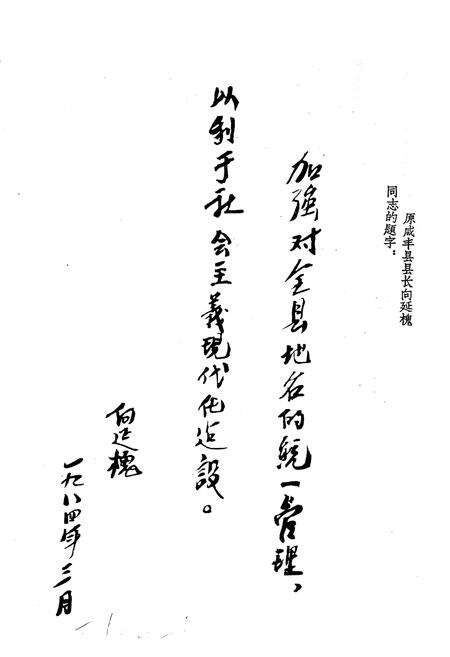 原咸丰县县长向延槐
同志的题字：
加强对全县地名的統一管理，
以利于社会主義現代化建設。
向延槐
一九八四年三月